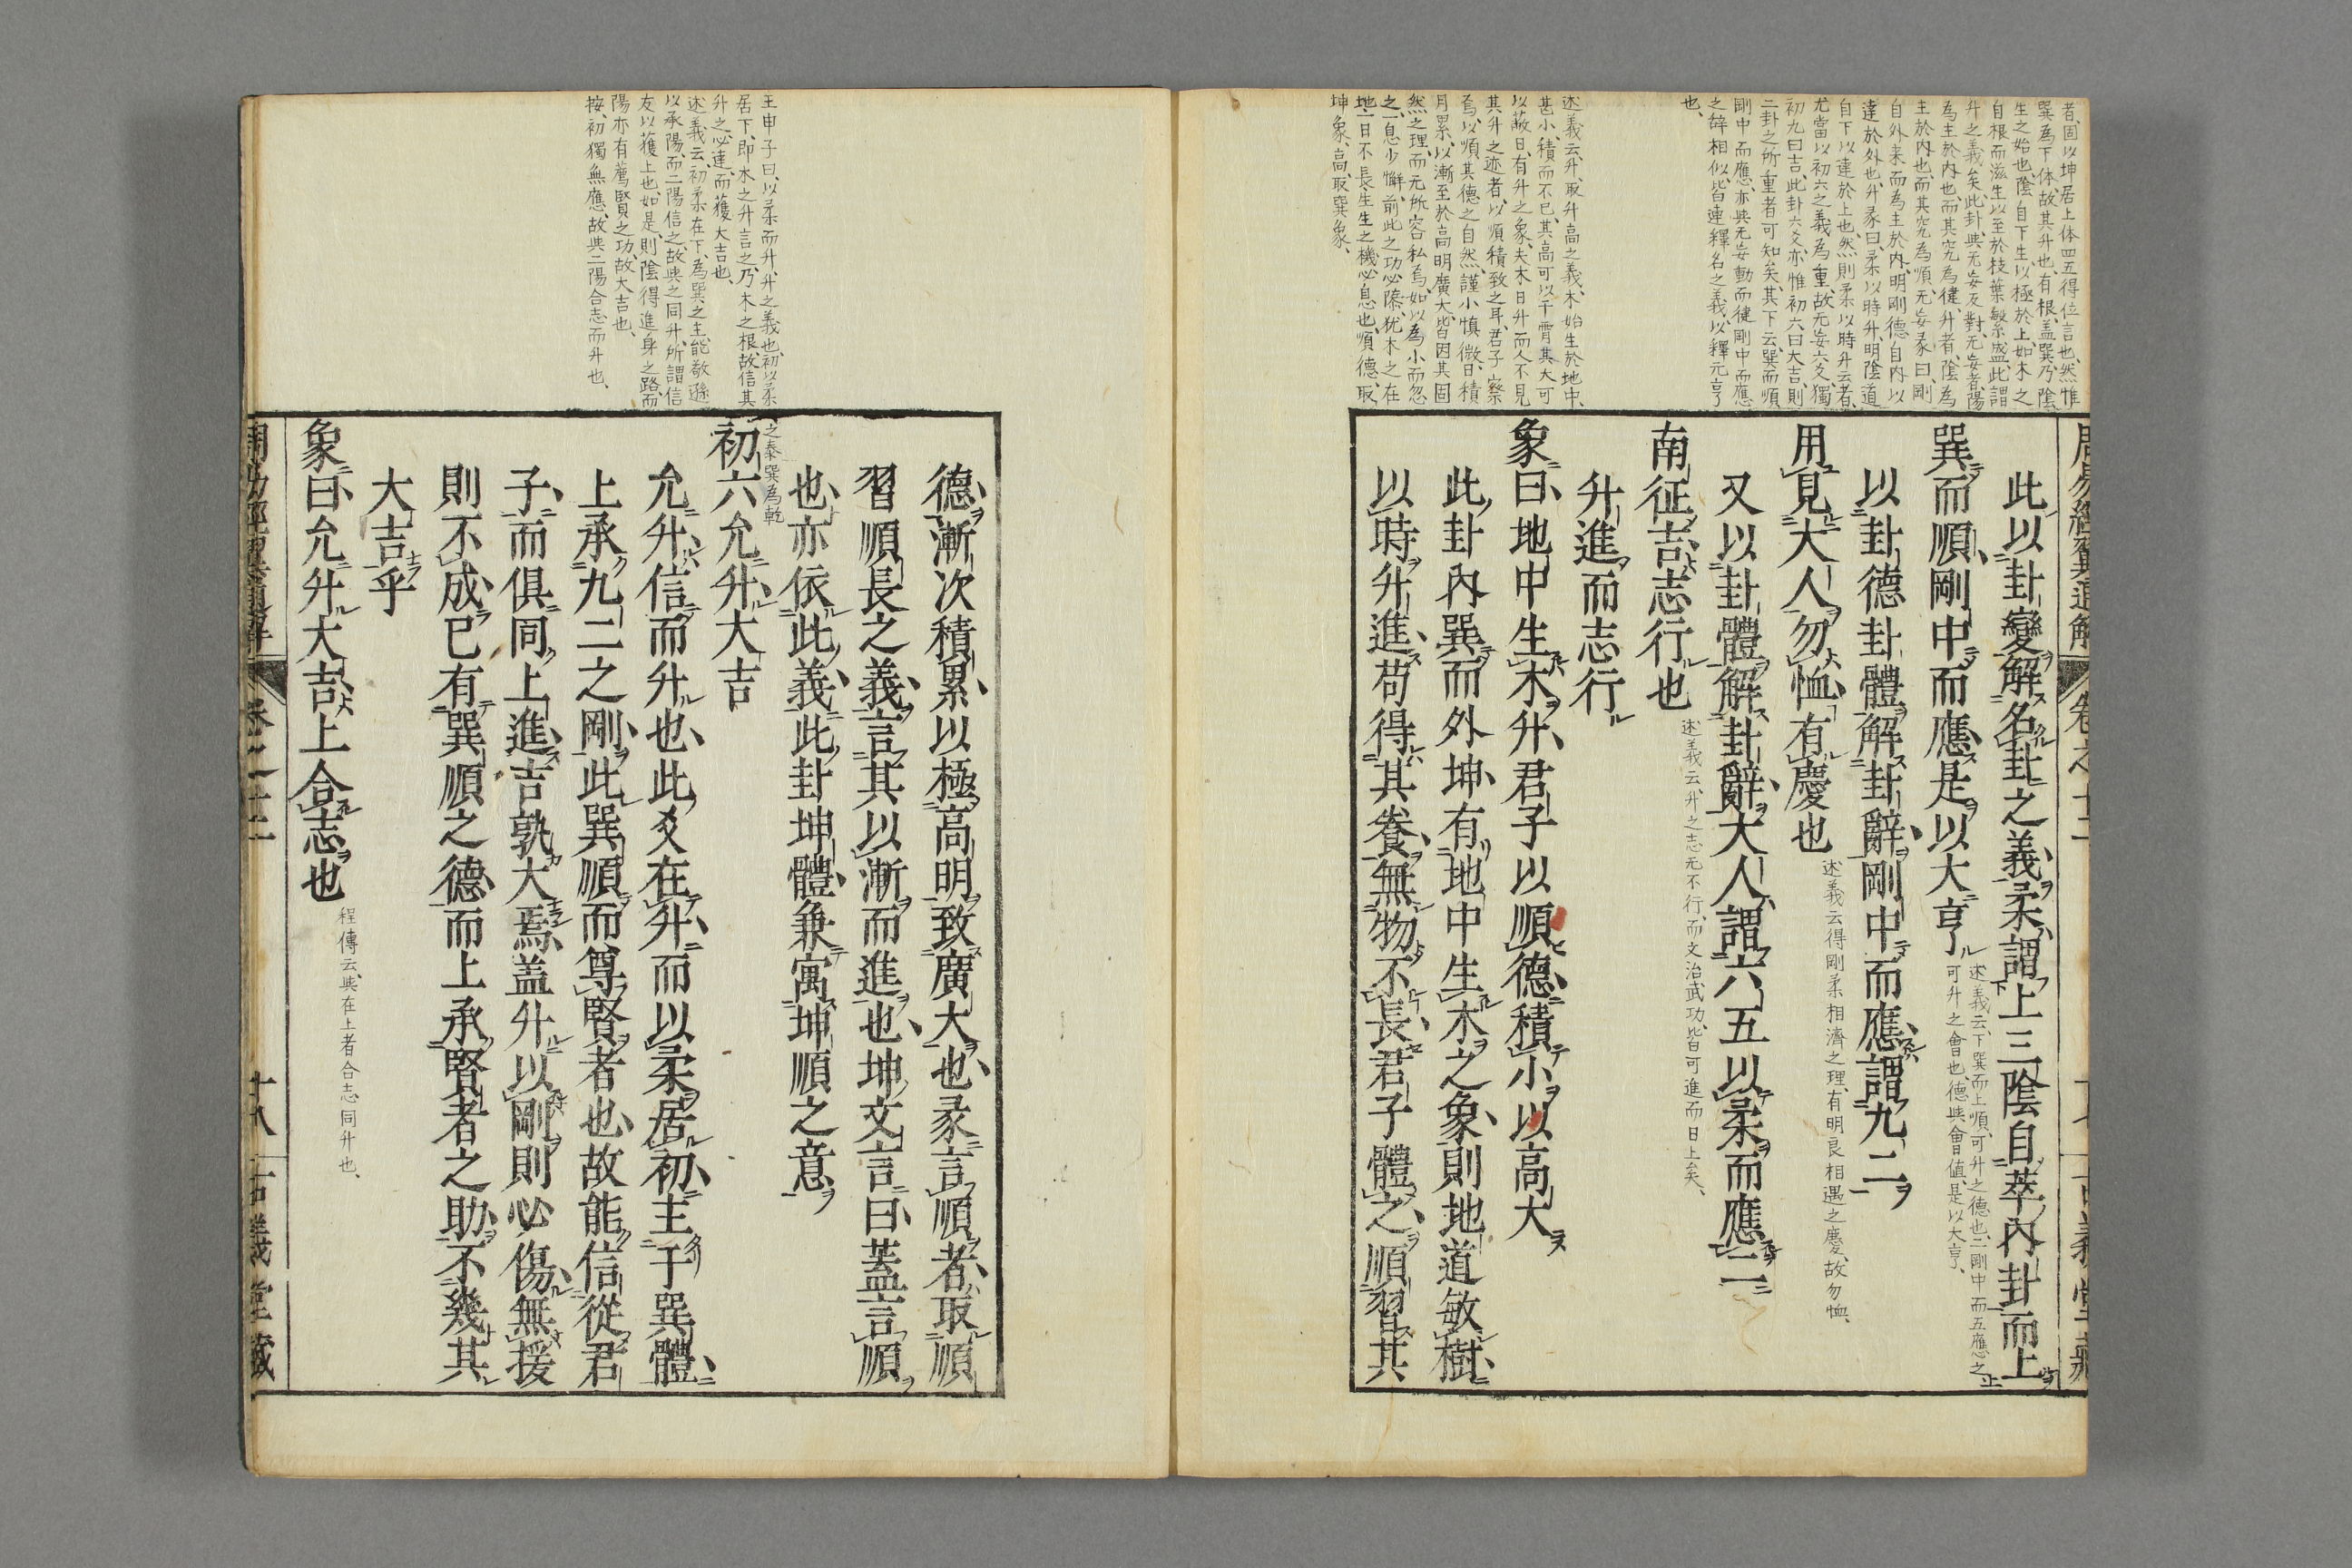 者、固以坤居上体四五得位言也、然惟
巽為下体、故其升也、有根、盖巽乃陰
生之始也、陰自下生、以極於上、如木之
自根而滋生以至於枝葉繁盛、此謂
升之義矣、此卦與无妄反對、无妄者、陽
為主於內也、而其究為健、升者、陰為
主於內也、而其究為順、无妄彖曰、剛
自外來而為主於內、明剛德自內以
達於外也、升彖曰、柔以時升、明陰道
自下以達於上也、然則柔以時升云者、
尤當以初六之義為重、故无妄六爻、獨
初九曰吉、此卦六爻、亦惟初六曰大吉、則
二卦之所重者可知矣、其下云巽而順
剛中而應、亦與无妄動而健剛中而應
之辭相似、皆連釋名之義、以釋元亨
也、
述義云、升、取升高之義、木始生於地中、
甚小、積而不已、其高可以干霄、其大可
以蔽日、有升之象、夫木日升而人不見
其升之迹者、以順積致之耳、君子察
焉、以順其德之自然、謹小慎微、日積
月累、以漸至於高明廣大、皆因其固
然之理、而无所容私焉、如以為小而忽
之、一息少懈、前此之功必隳、猶木之在
地、一日不長、生生之機必息也、順德、取
坤象、高、取巽象、
周易經翼通解 卷之十二
此以卦變解名卦之義柔謂上三陰自萃內卦而上
巽而順剛中而應是以大亨
述義云、下巽而上順、可升之德也、二剛中而五應之
可升之會也、德與會值、是以大亨、
以卦德卦體解卦辭剛中而應謂九二
用見大人勿恤有慶也
述義云得剛柔相濟之理、有明良相遇之慶、故勿恤、
又以卦體解卦辭大人謂六五以柔而應二
南征吉志行也
述義云、升之志无不行、而文治武功、皆可進而日上矣、
升進而志行
象曰地中生木升君子以順德積小以高大
此卦內巽而外坤有地中生木之象則地道敏樹
以時升進苟得其養無物不長君子體之順習其
王申子曰、以柔而升、升之義也、初以柔
居下、即木之升言之、乃木之根、故信其
升之必達、而獲大吉也、
述義云、初柔在下、為巽之主、能敬遜
以承陽、而二陽信之、故與之同升、所謂信
友以獲上也、如是、則陰得進身之路、而
陽亦有薦賢之功、故大吉也、
按、初獨無應、故與二陽合志而升也、
德漸次積累以極高明致廣大也彖言順者取順
習順長之義言其以漸而進也坤文言曰蓋言順
也亦依此義此卦坤體兼寓坤順之意
初六允升大吉
之泰巽為乾
允升信而升也此爻在升而以柔居初主于巽體
上承九二之剛此巽順而尊賢者也故能信從君
子而俱同上進吉孰大焉盖升以剛則必傷無援
則不成已有巽順之德而上承賢者之助不幾其
大吉乎
象曰允升大吉上合志也
程傳云、與在上者合志同升也、
周易經翼通解 卷之十二 十八 古義堂藏